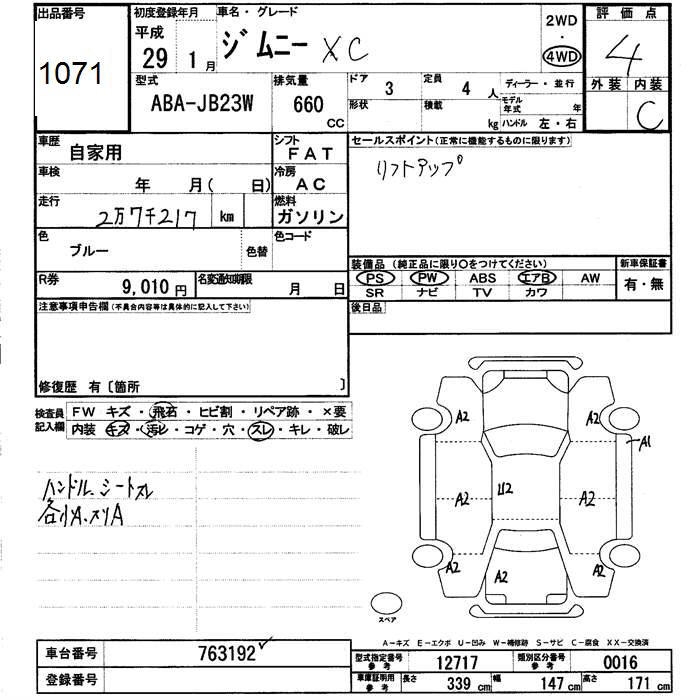 出品番号
1071
初度登録年月
平成
29 1 月
車名・グレード
ジムニー XC
2WD
・
4WD
評価点
4
外装 内装
C
型式
ABA-JB23W
排気量
660
CC
ドア
3
定員
4 人
形状
積載
kg
ディーラー・並行
モデル年式 年
ハンドル 左・右
車歴
自家用
シフト
FAT
セールスポイント(正常に機能するものに限ります)
リフトアップ
車検
年 月( 日)
冷房
AC
走行
2万7千217 km
燃料
ガソリン
色
ブルー
色替
色コード
装備品(純正品に限り〇をつけてください)
PS PW ABS エアB AW
SR ナビ TV カワ
新車保証書
有・無
R券
9,010 円
名変通知期限
月 日
後日品
注意事項申告欄(不具合内容等は具体的に記入して下さい)
修復歴 有〔箇所 〕
検査員記入欄
FW キズ・飛石・ヒビ割・リペア跡・×要
内装 キズ・汚レ・コゲ・穴・スレ・キレ・破レ
ハンドル、シートスレ
各小A、スリA
A2
A2
A1
A2
U2
A2
A2
A2
A2
スペア
A-キズ E-エクボ U-凹み W-補修跡 S-サビ C-腐食 XX-交換済
車台番号
763192
登録番号
型式指定番号 参考
12717
類別区分番号 参考
0016
車庫証明用 参考
長さ 339 cm 幅 147 cm 高さ 171 cm